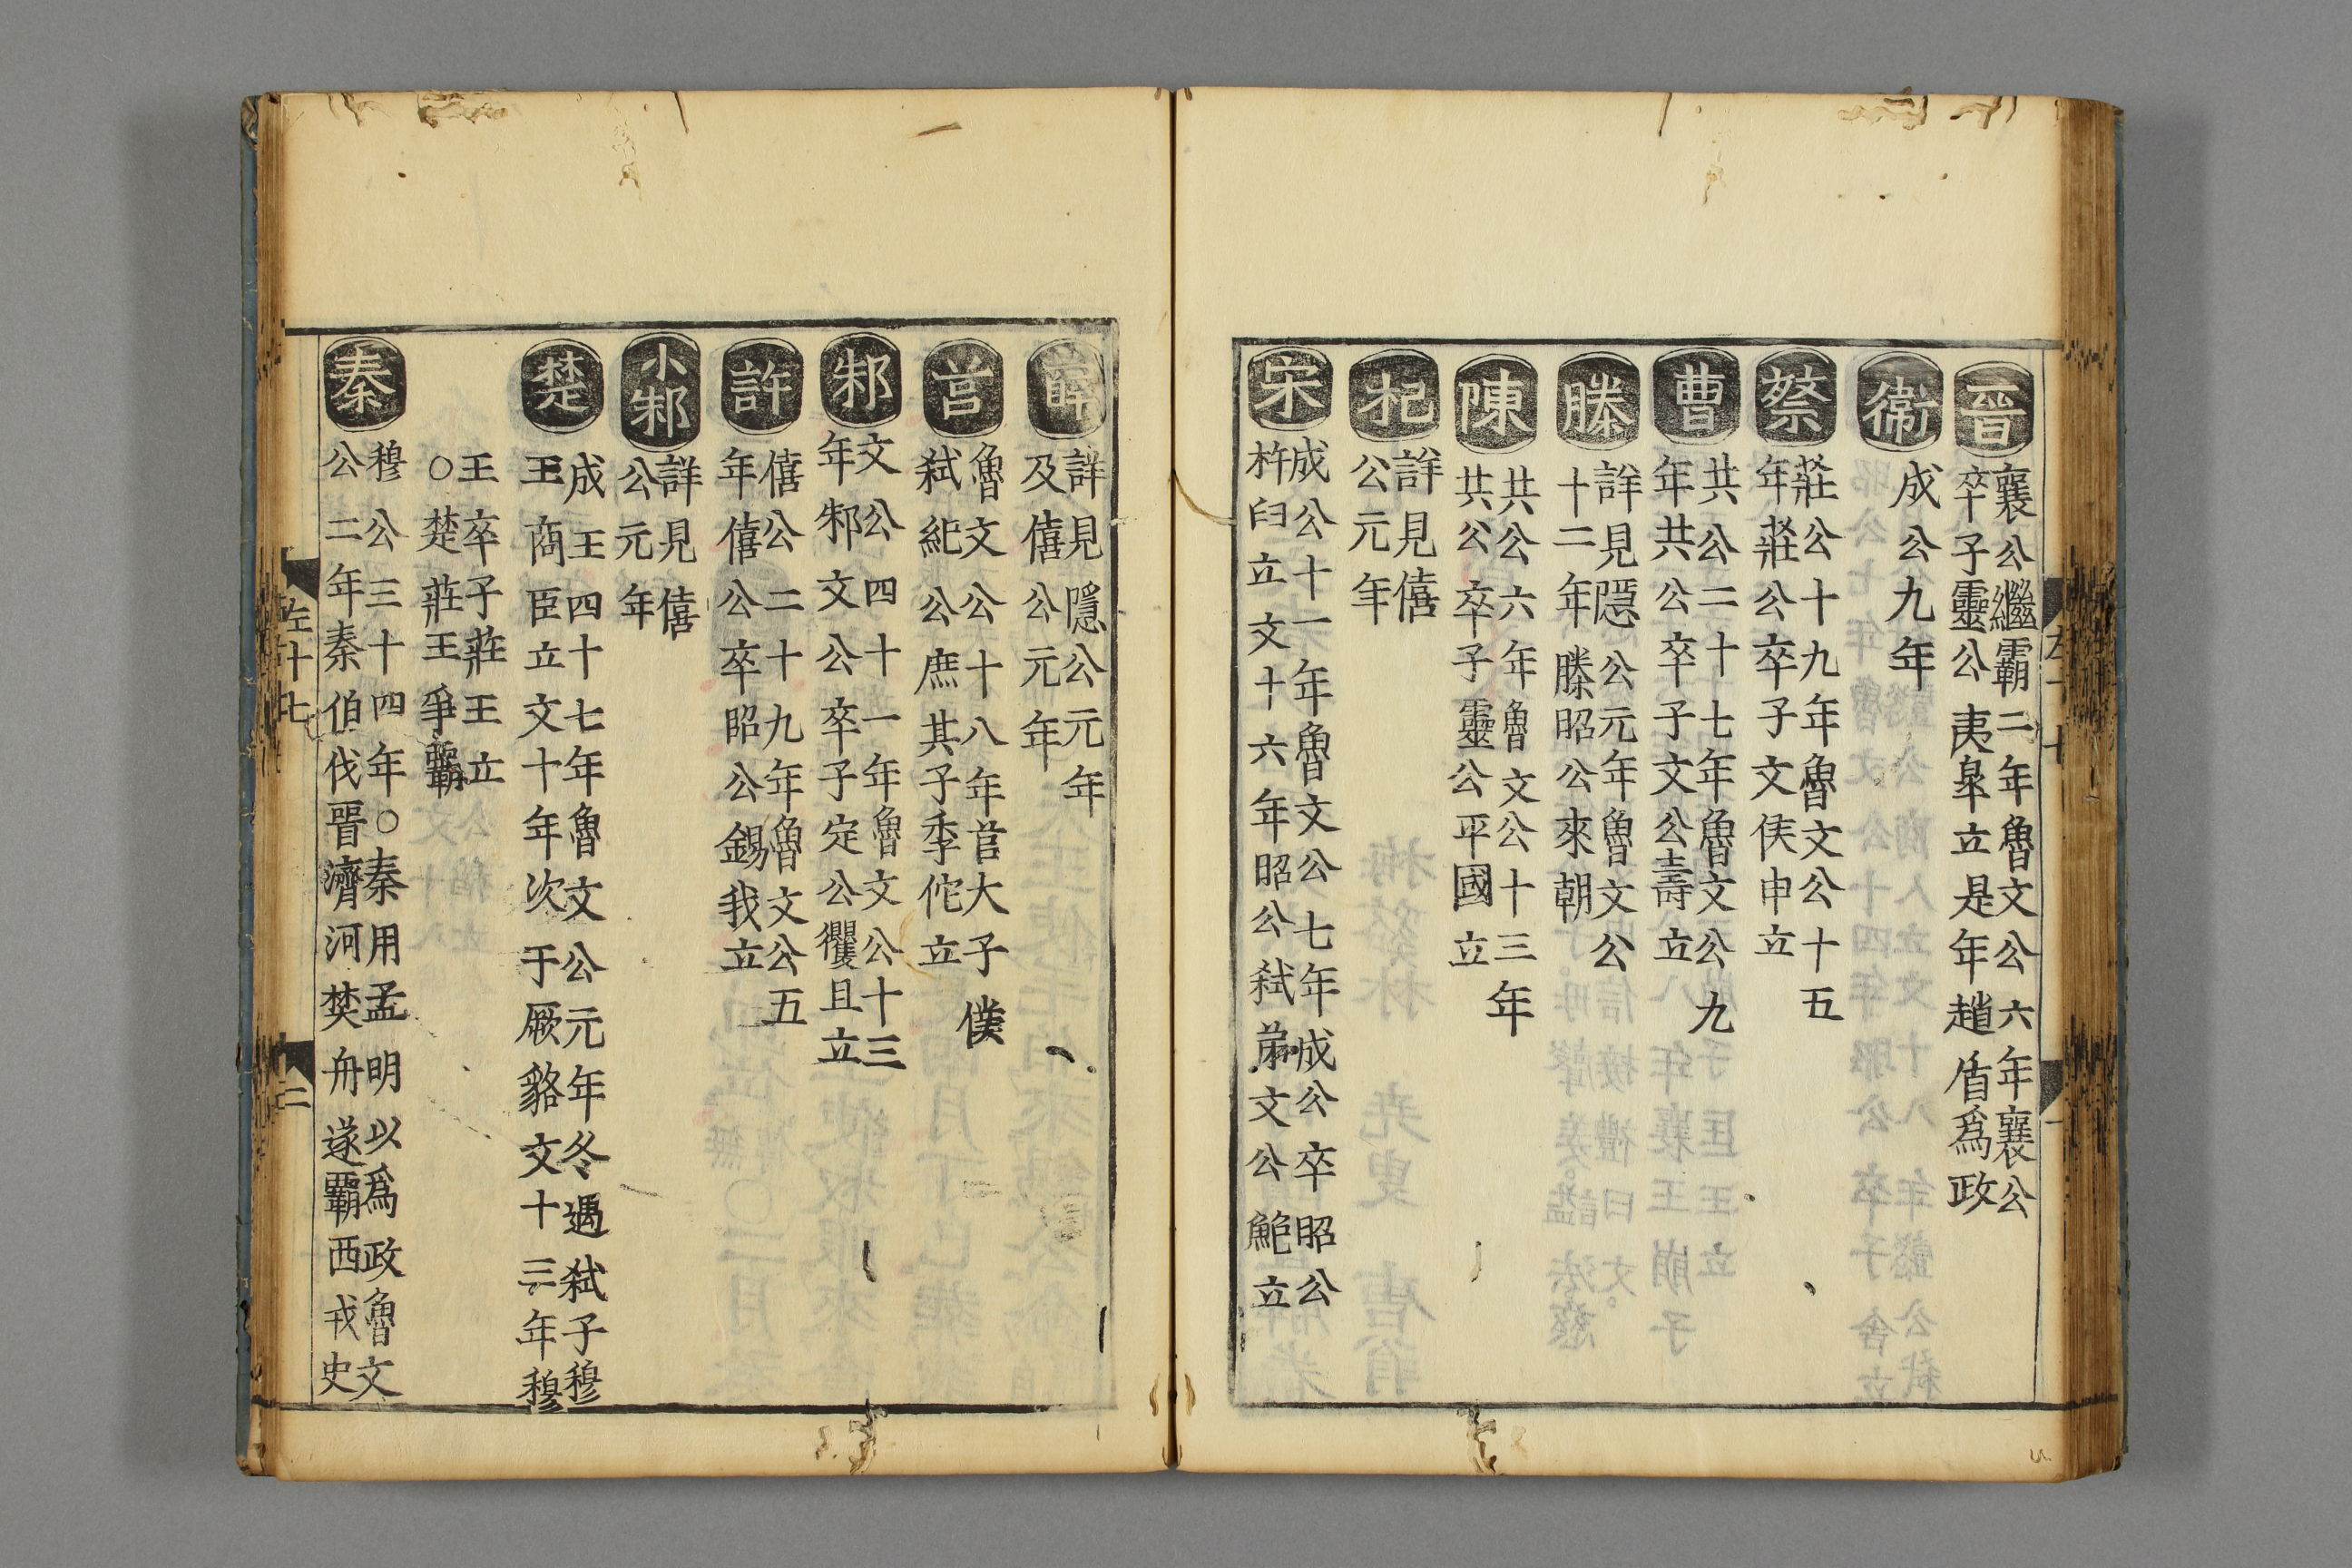 晉
襄公繼霸二年魯文公六年襄公
卒子靈公夷皐立是年趙盾爲政
衞
成公九年
蔡
莊公十九年魯文公十五
年莊公卒子文侯申立
曹
共公二十七年魯文公九
年共公卒子文公壽立
滕
詳見隱公元年魯文公
十二年滕昭公來朝
陳
共公六年魯文公十三年
共公卒子靈公平國立
杞
詳見僖
公元年
宋
成公十一年魯文公七年成公卒昭公
杵臼立文十六年昭公弑弟文公鮑立
薛
詳見隱公元年
及僖公元年
莒
魯文公十八年莒大子僕
弑紀公庶其子季佗立
邾
文公四十一年魯文公十三
年邾文公卒子定公貜且立
許
僖公二十九年魯文公五
年僖公卒昭公錫我立
小邾
詳見僖
公元年
楚
成王四十七年魯文公元年冬遇弑子穆
王商臣立文十年次于厥貉文十三年穆
王卒子莊王立
○楚莊王爭霸
秦
穆公三十四年○秦用孟明以爲政魯文
公二年秦伯伐晉濟河焚舟遂霸西戎史
左十七
二